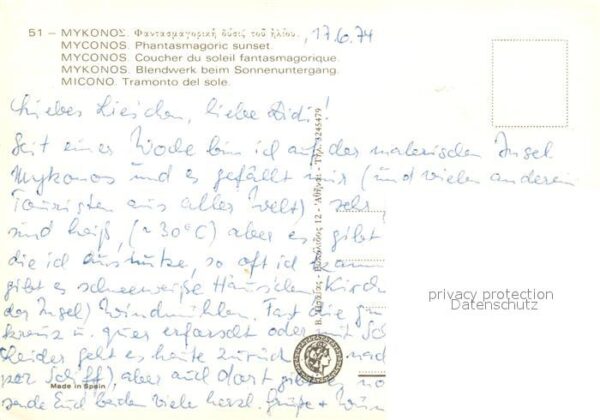 51 – ΜΥΚΟΝΟΣ. Φαντασμαγορικὴ δύσις τοῦ ἡλίου. 17.6.74
MYCONOS. Phantasmagoric sunset.
MYCONOS. Coucher du soleil fantasmagorique.
MYKONOS. Blendwerk beim Sonnenuntergang.
MICONO. Tramonto del sole.
Liebes Lieschen, liebe Didi!
Seit einer Woche bin ich auf der malerischen Insel
Mykonos und es gefällt mir (und vielen anderen
Touristen aus aller Welt) sehr
sind heiß, (~30°C) aber es gibt
die ich ausnutze, so oft ich kann
gibt es schneeweiße Häuschen, Kirch
der Insel) Windmühlen. Fast die
kreuz u. quer erforscht oder mit Sch
Leider geht es heute zurück nach
per Schiff) aber auch dort gibt es no
Bade beiden viele herzl. Grüße + Wün
Made in Spain
12 - Ἀθῆναι - Τηλ. 3245479
privacy protection
Datenschutz